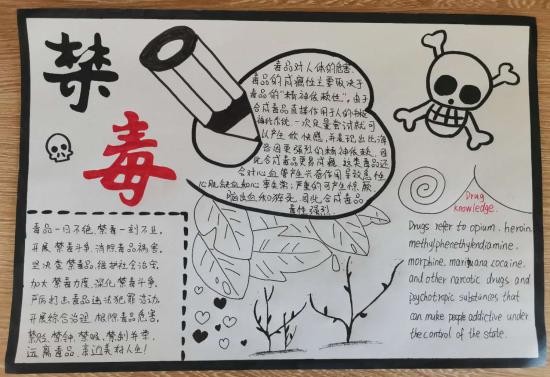 禁
毒
毒品对人体的危害:
毒品的成瘾性主要取决于
毒品的"精神依赖性"。由于
合成毒品直接作用于人的中枢
神经系统,一次足量尝试就可
以产生欣快感,并表现出比海
洛因更强烈的精神依赖,因
此合成毒品更易成瘾,这类毒品还
会对心血管产生兴奋作用导致急性
心肌缺血和心率失常;严重的可产生惊厥
脑出血和猝死。因此,合成毒品
毒性强烈。
Drug
knowledge.
Drugs refer to opium, heroin,
methylphenethylendiamine.
morphine, marijuana, cocaine,
and other narcotic drugs and
psychotropic substances that
can make people addictive under
the control of the state.
毒品一日不绝,禁毒一刻不止。
开展禁毒斗争,消除毒品祸害。
坚决查禁毒品,维护社会治安。
加大禁毒力度,深化禁毒斗争。
严厉打击毒品违法犯罪活动。
开展综合治理,根除毒品危害。
禁贩、禁种、禁吸、禁制并举。
远离毒品,亲近美好人生!